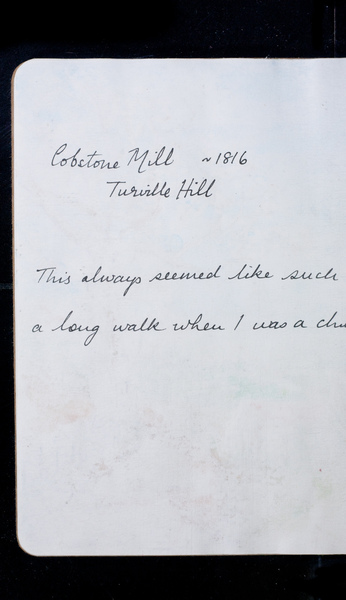 Cobstone Mill ~1816
Turville Hill
This always seemed like such
a long walk when I was a